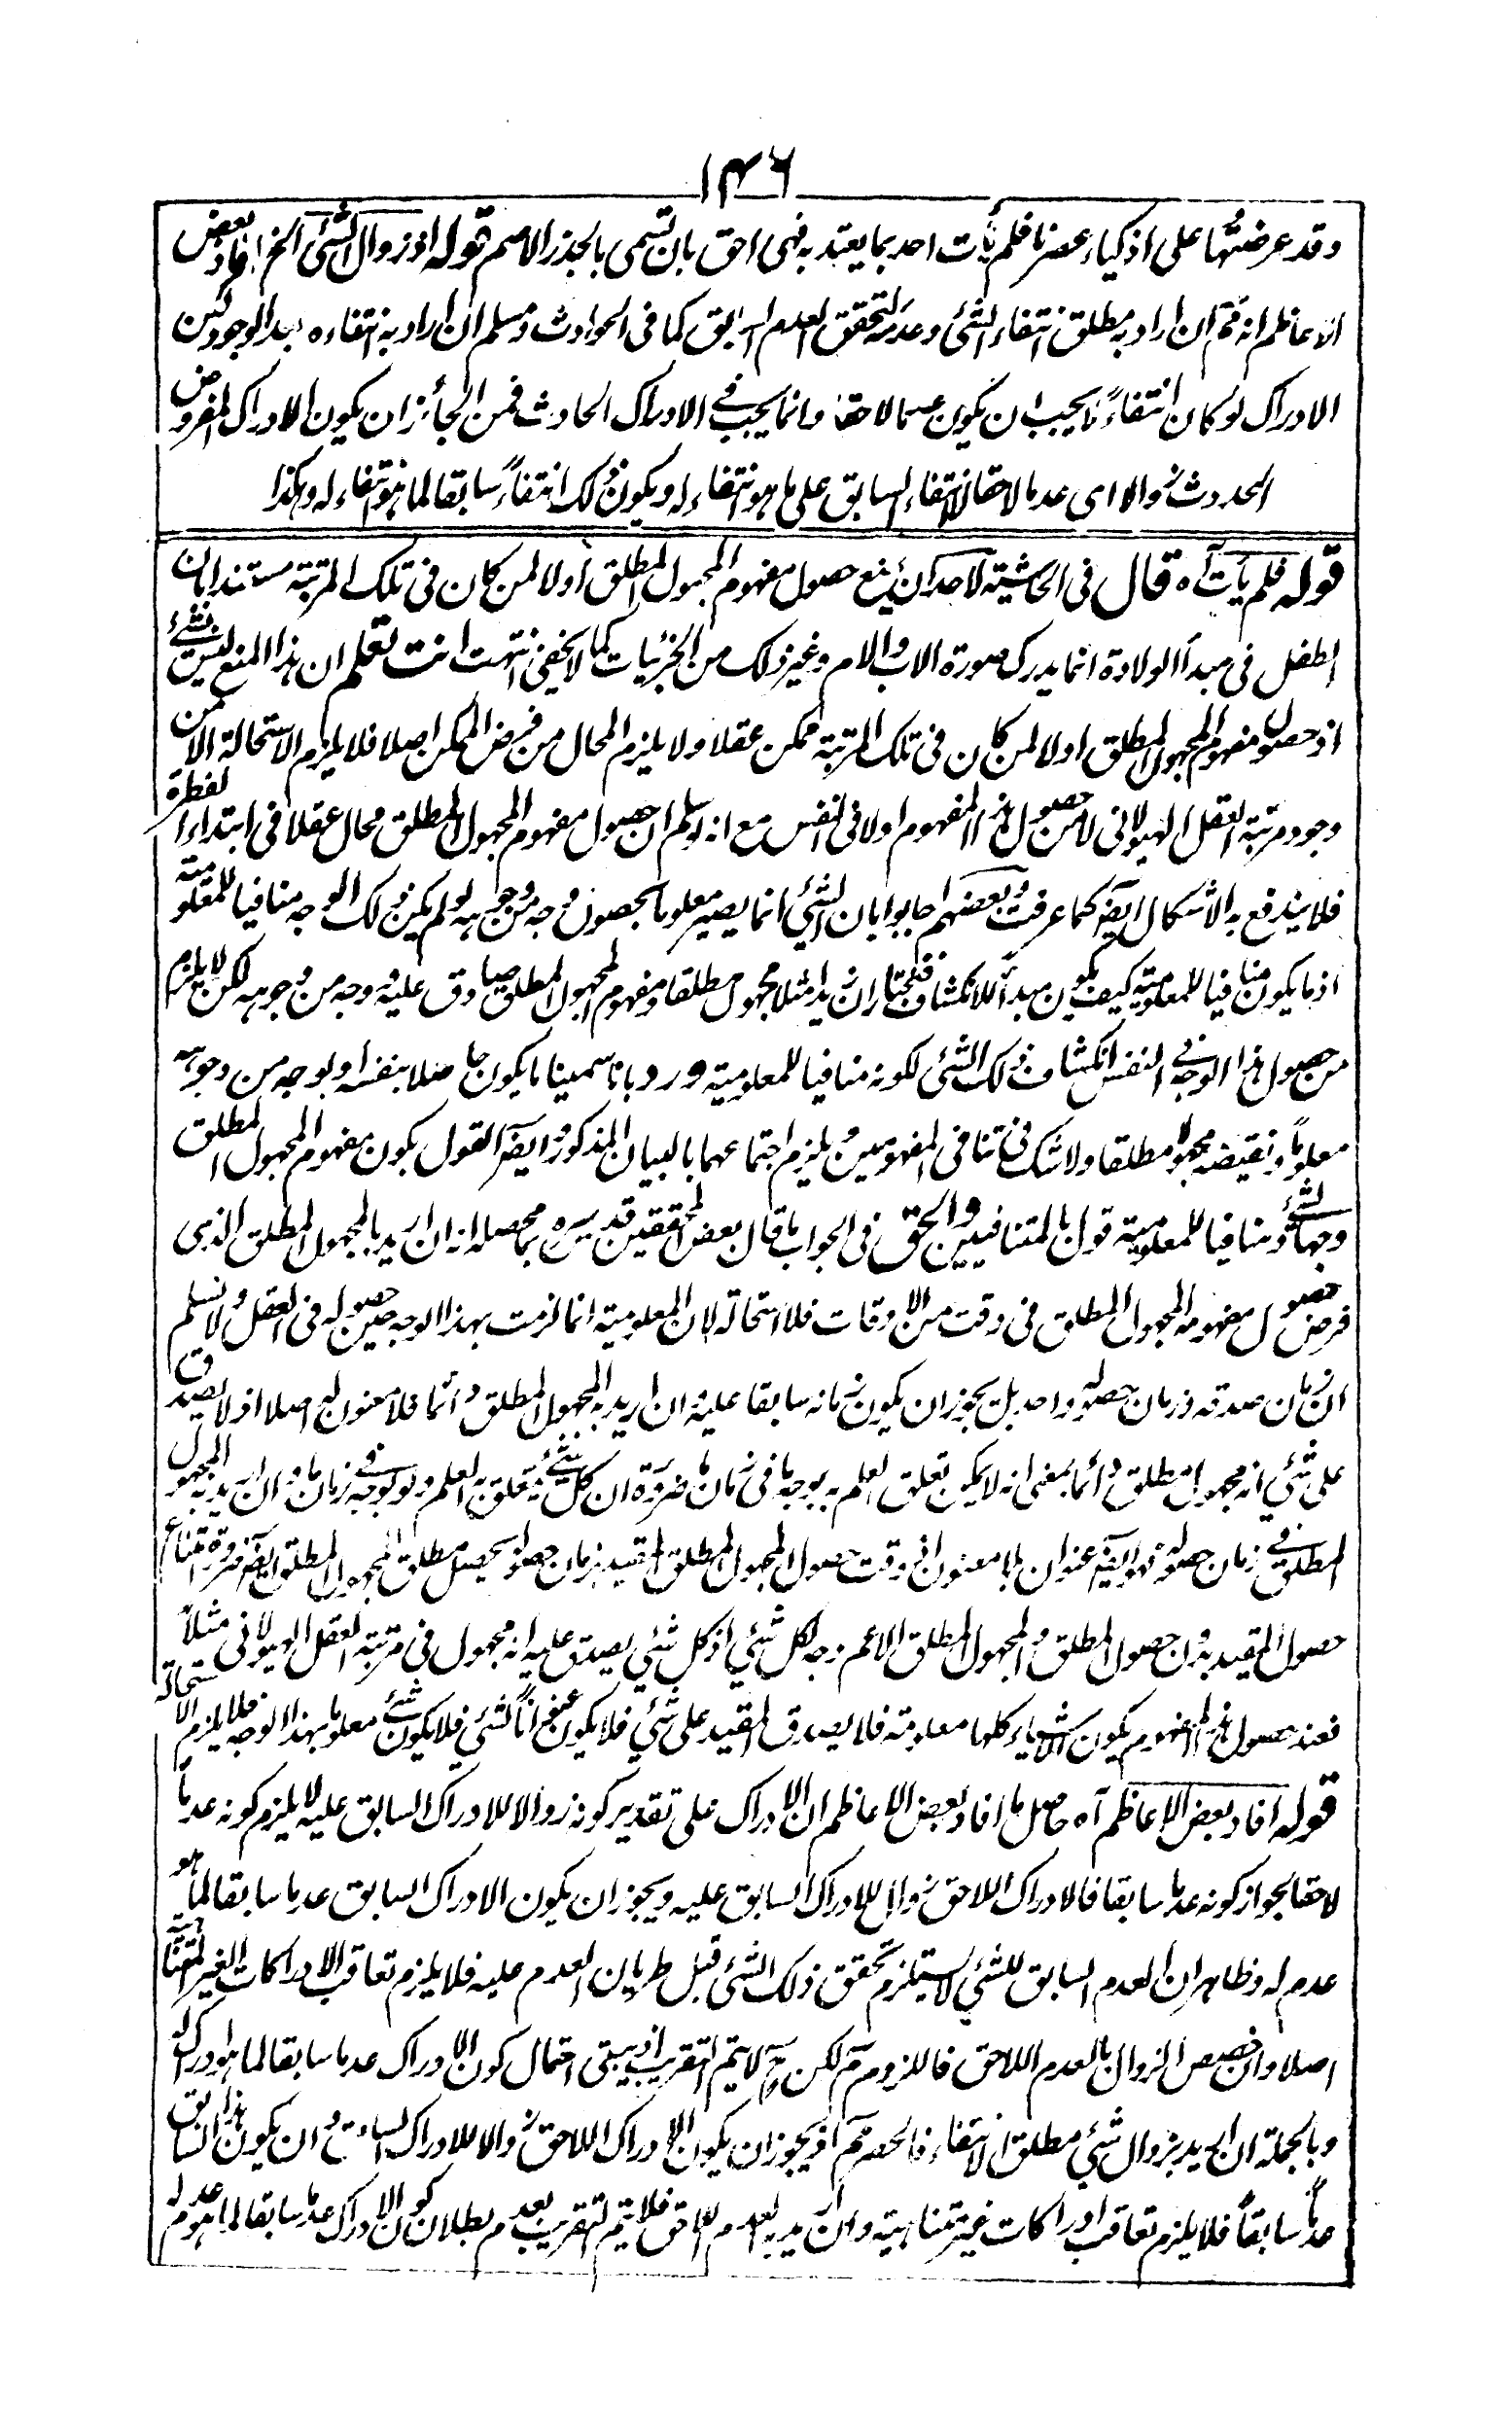 ١٣٦
وقد عرضتها على اذكياء عصرنا فلم يأت احد بما يعتد به فهى احق بان تسمى بالجذر الاصم قوله اذ زوال الشئ الخ افاد بعض
الاعاظم انه مم ان اراد به مطلق انتفاء الشئ وعدمه لتحقق العدم السابق كما فى الحوادث ومسلم ان اراد به انتفاءه بعد الوجود لكن
الادراك لو كان انتفاءً لا يجب ان يكون عدما لاحقا وانما يجب فى الادراك الحادث فمن الجائز ان يكون الادراك المفروض
الحدوث زوالا اى عدما لاحقا لانتفاء السابق على ما هو انتفاء له ويكون ذلك انتفاءً سابقا لما هو انتفاء له وهكذا
قوله فلم يأت آه قال فى الحاشية لاحد ان يمنع حصول مفهوم المجهول المطلق اولا لمن كان فى تلك المرتبة مستندا بان
الطفل فى مبدأ الولادة انما يدرك صورة الاب والام وغير ذلك من الجزئيات كما لا يخفى انتهت انت تعلم ان هذا المنع ليس بشئ
اذ حصول مفهوم المجهول المطلق اولا لمن كان فى تلك المرتبة ممكن عقلا ولا يلزم المحال من فرض الممكن اصلا فلا يلزم الاستحالة الا من
وجود مرتبة العقل الهيولانى لا من حصول هذا المفهوم اولا فى النفس مع انه لو سلم ان حصول مفهوم المجهول المطلق محال عقلا فى ابتداء الفطرة
فلا يندفع به الاشكال ايضا كما عرفت وبعضهم اجابوا بان الشئ انما يصير معلوما بحصول وجه من وجوهه لو لم يكن ذلك الوجه منافيا للمعلومية
اذ ما يكون منافيا للمعلومية كيف يكون مبدأ للانكشاف فنختار ان زيدا مثلا مجهول مطلقا ومفهوم المجهول المطلق صادق عليه ووجه من وجوهه لكن لا يلزم
من حصول هذا الوجه فى النفس انكشاف ذلك الشئ لكونه منافيا للمعلومية ورد بانا سمينا ما يكون حاصلا بنفسه او بوجه من وجوهه
معلوماً ونقيضه مجهولا مطلقا ولا شك فى تنافى المفهومين ويلزم اجتماعهما بالبيان المذكور وايضا القول بكون مفهوم المجهول المطلق
وجها لشئ ومنافيا للمعلومية قول بالمتنافيين والحق فى الجواب ما قال بعض المحققين قدس سره بما محصله انه ان اريد بالمجهول المطلق الذى
فرض حصول مفهومه المجهول المطلق فى وقت من الاوقات فلا استحالة لان المعلومية انما لزمت بهذا الوجه حين حصوله فى العقل ولا نسلم
ان زمان صدقه وزمان حصوله واحد بل يجوز ان يكون زمانه سابقا عليه وان اريد به المجهول المطلق دائما فلا معنون له اصلا اذ لا يصدق
على شئ انه مجهول مطلق دائما بمعنى انه لا يمكن تعلق العلم به بوجه ما فى زمان ما ضرورة ان كل شئ يتعلق به العلم ولو بوجه فى زمان ما وان اريد به المجهول
المطلق فى زمان حصوله فهو ايضا عنوان بلا معنون اذ وقت حصول المجهول المطلق المقيد بزمان حصوله يحصل مطلق المجهول المطلق ايضا ضرورة امتناع
حصول المقيد بدون حصول المطلق والمجهول المطلق الاعم وجه لكل شئ اذ كل شئ يصدق عليه انه مجهول فى مرتبة العقل الهيولانى مثلاً
فعند حصول هذا المفهوم يكون الاشياء كلها معلومة فلا يصدق المقيد على شئ فلا يكون عنوانا لشئ فلا يكون شئ معلوما بهذا الوجه فلا يلزم الاستحالة
قوله افاد بعض الاعاظم آه حاصل ما افاد بعض الاعاظم ان الادراك على تقدير كونه زوالا للادراك السابق عليه لا يلزم كونه عدماً
لاحقا لجواز كونه عدما سابقا فالادراك اللاحق زوال للادراك السابق عليه ويجوز ان يكون الادراك السابق عدما سابقا لما هو
عدم له وظاهر ان العدم السابق للشئ لا يستلزم تحقق ذلك الشئ قبل طريان العدم عليه فلا يلزم تعاقب الادراكات الغير المتناهية
اصلا وان خصص الزوال بالعدم اللاحق فاللزوم مم لكن ح لا يتم التقريب اذ يبقى احتمال كون الادراك عدما سابقا لما هو ادراك له
وبالجملة ان اريد بزوال شئ مطلق الانتفاء فالحصر مم اذ يجوز ان يكون الادراك اللاحق زوالا للادراك السابق وان يكون هذا السابق
عدماً سابقاً فلا يلزم تعاقب ادراكات غير متناهية وان اريد به العدم اللاحق فلا يتم التقريب بعدم بطلان كون الادراك عدما سابقا لما هو عدم له